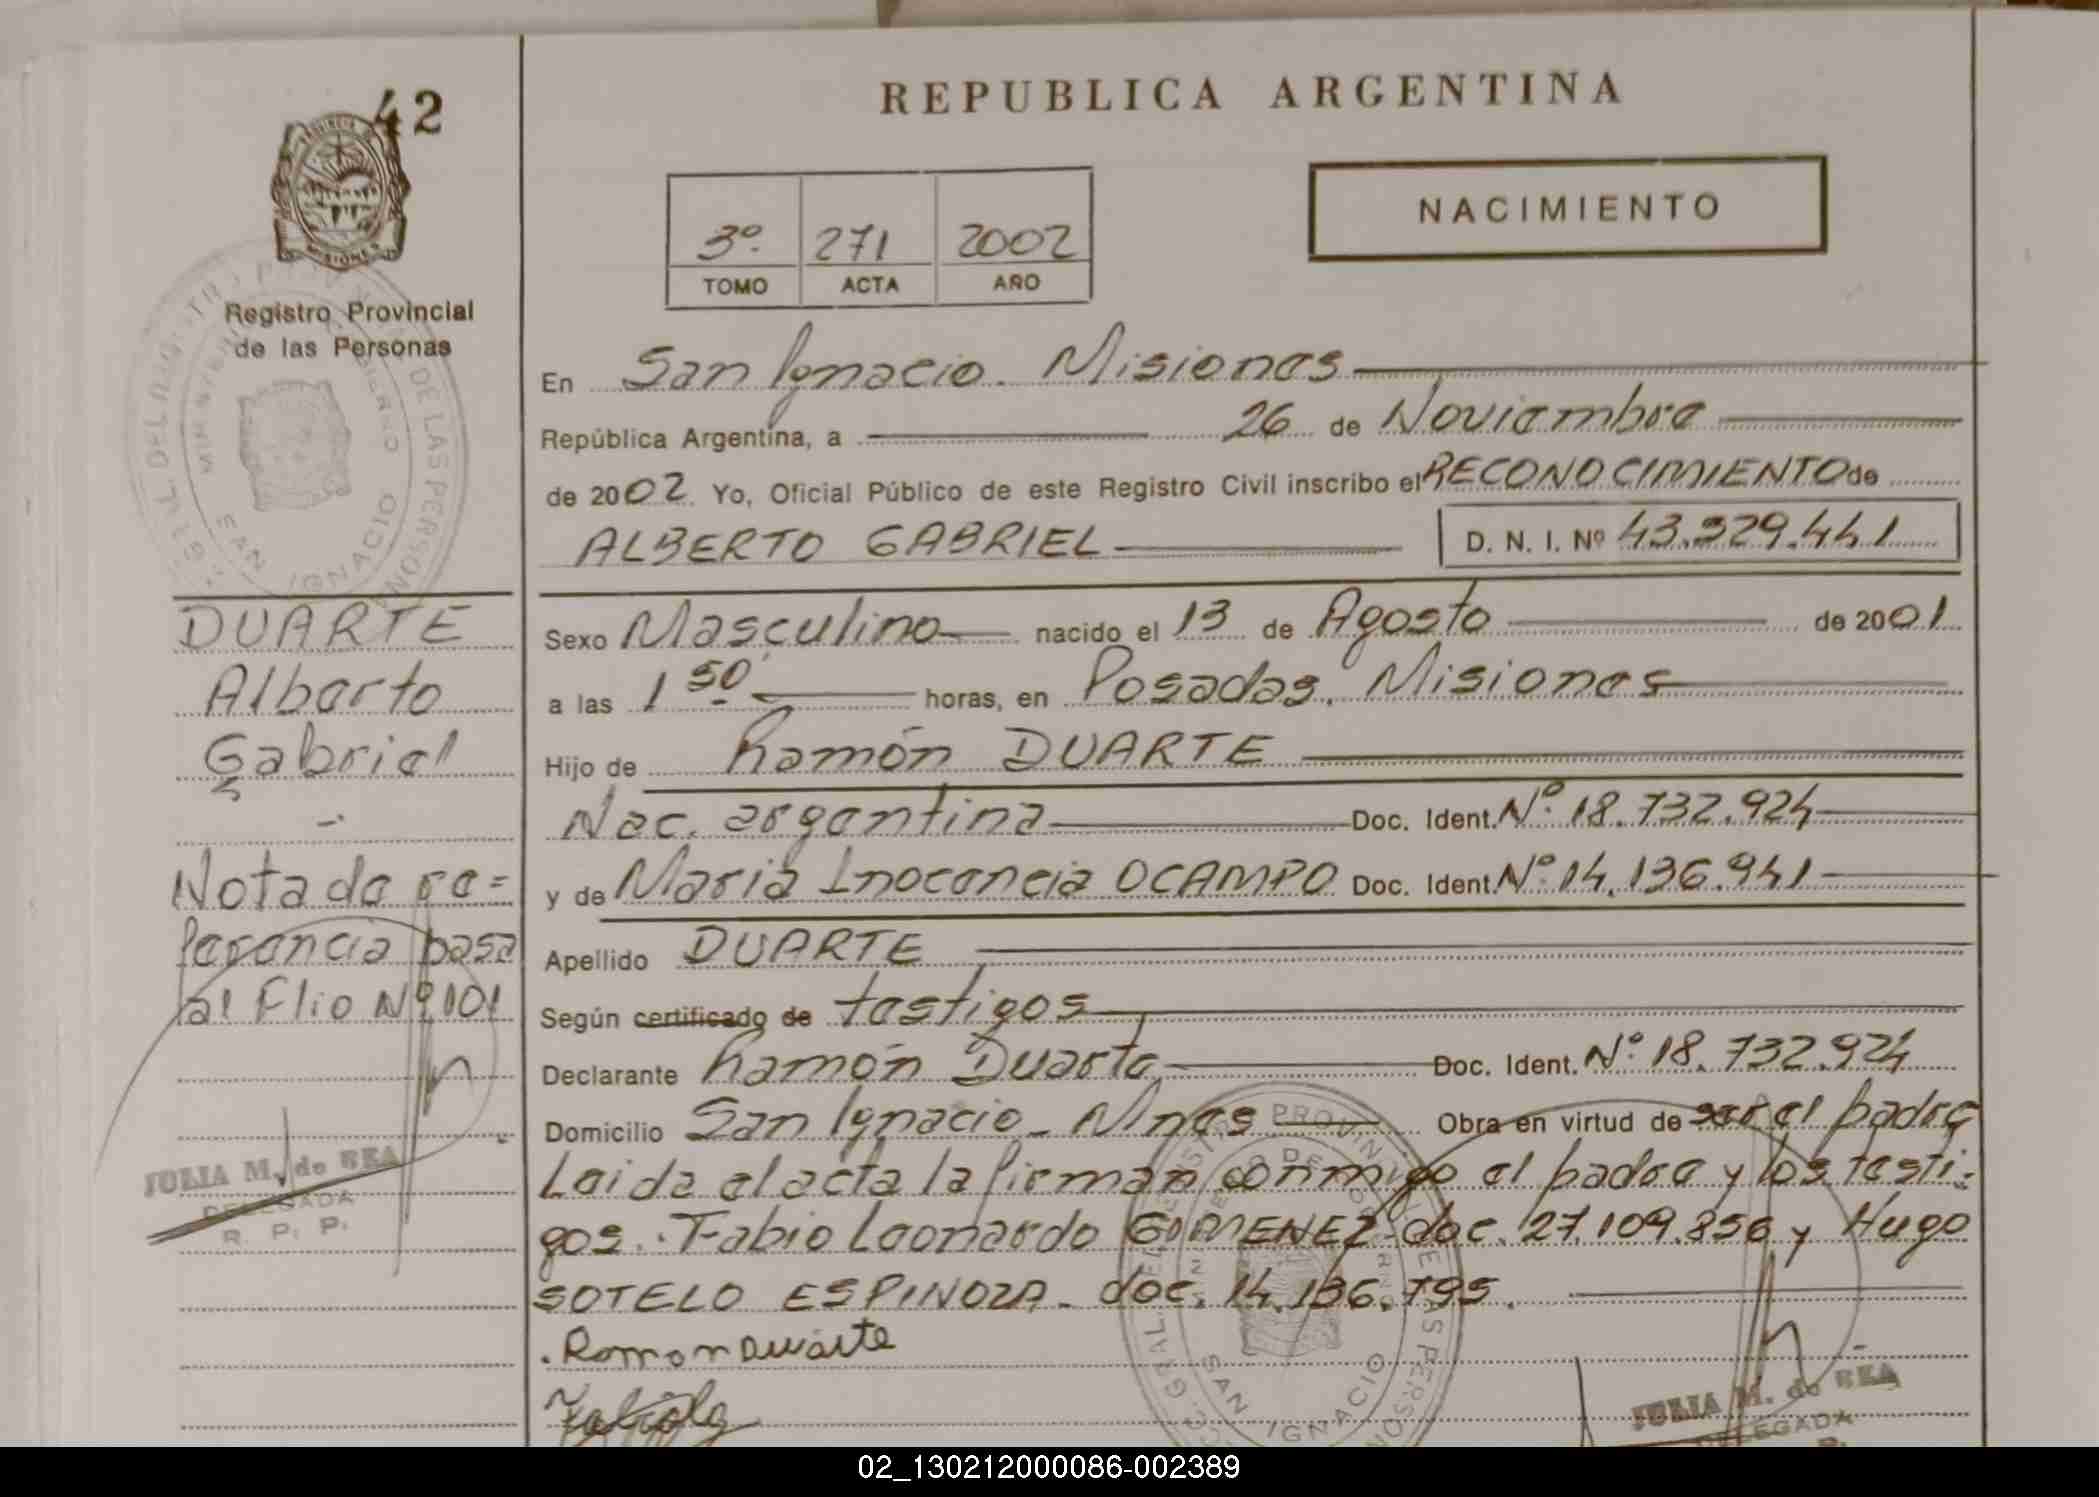 42
REPUBLICA ARGENTINA
NACIMIENTO
3º 271 2002
TOMO ACTA AÑO
Registro Provincial
de las Personas
SAN IGNACIO
En San Ignacio. Misiones
República Argentina, a 26 de Noviembre
de 2002. Yo, Oficial Público de este Registro Civil inscribo el RECONOCIMIENTO de
ALBERTO GABRIEL D. N. I. Nº 43.329.441
DUARTE
Alberto
Gabriel
Nota de re=
ferencia pasa
al Flio Nº 101
JULIA M. de BEA
DELEGADA
R. P. P.
Sexo Masculino nacido el 13 de Agosto de 2001
a las 1 50 horas, en Posadas, Misiones
Hijo de Ramón DUARTE
Nac. argentina Doc. Ident. Nº 18.732.924
y de Maria Inocencia OCAMPO Doc. Ident. Nº 14.136.941
Apellido DUARTE
Según certificado de testigos
Declarante Ramón Duarte Doc. Ident. Nº 18.732.924
Domicilio San Ignacio - Mnes Obra en virtud de ser el padre
Leida el acta la firman conmigo el padre y los testi-
gos. Fabio Leonardo GIMENEZ doc. 27.109.856 y Hugo
SOTELO ESPINOZA - doc. 14.136.795.
Ramon Duarte
SAN IGNACIO
JULIA M. de BEA
DELEGADA
02_130212000086-002389